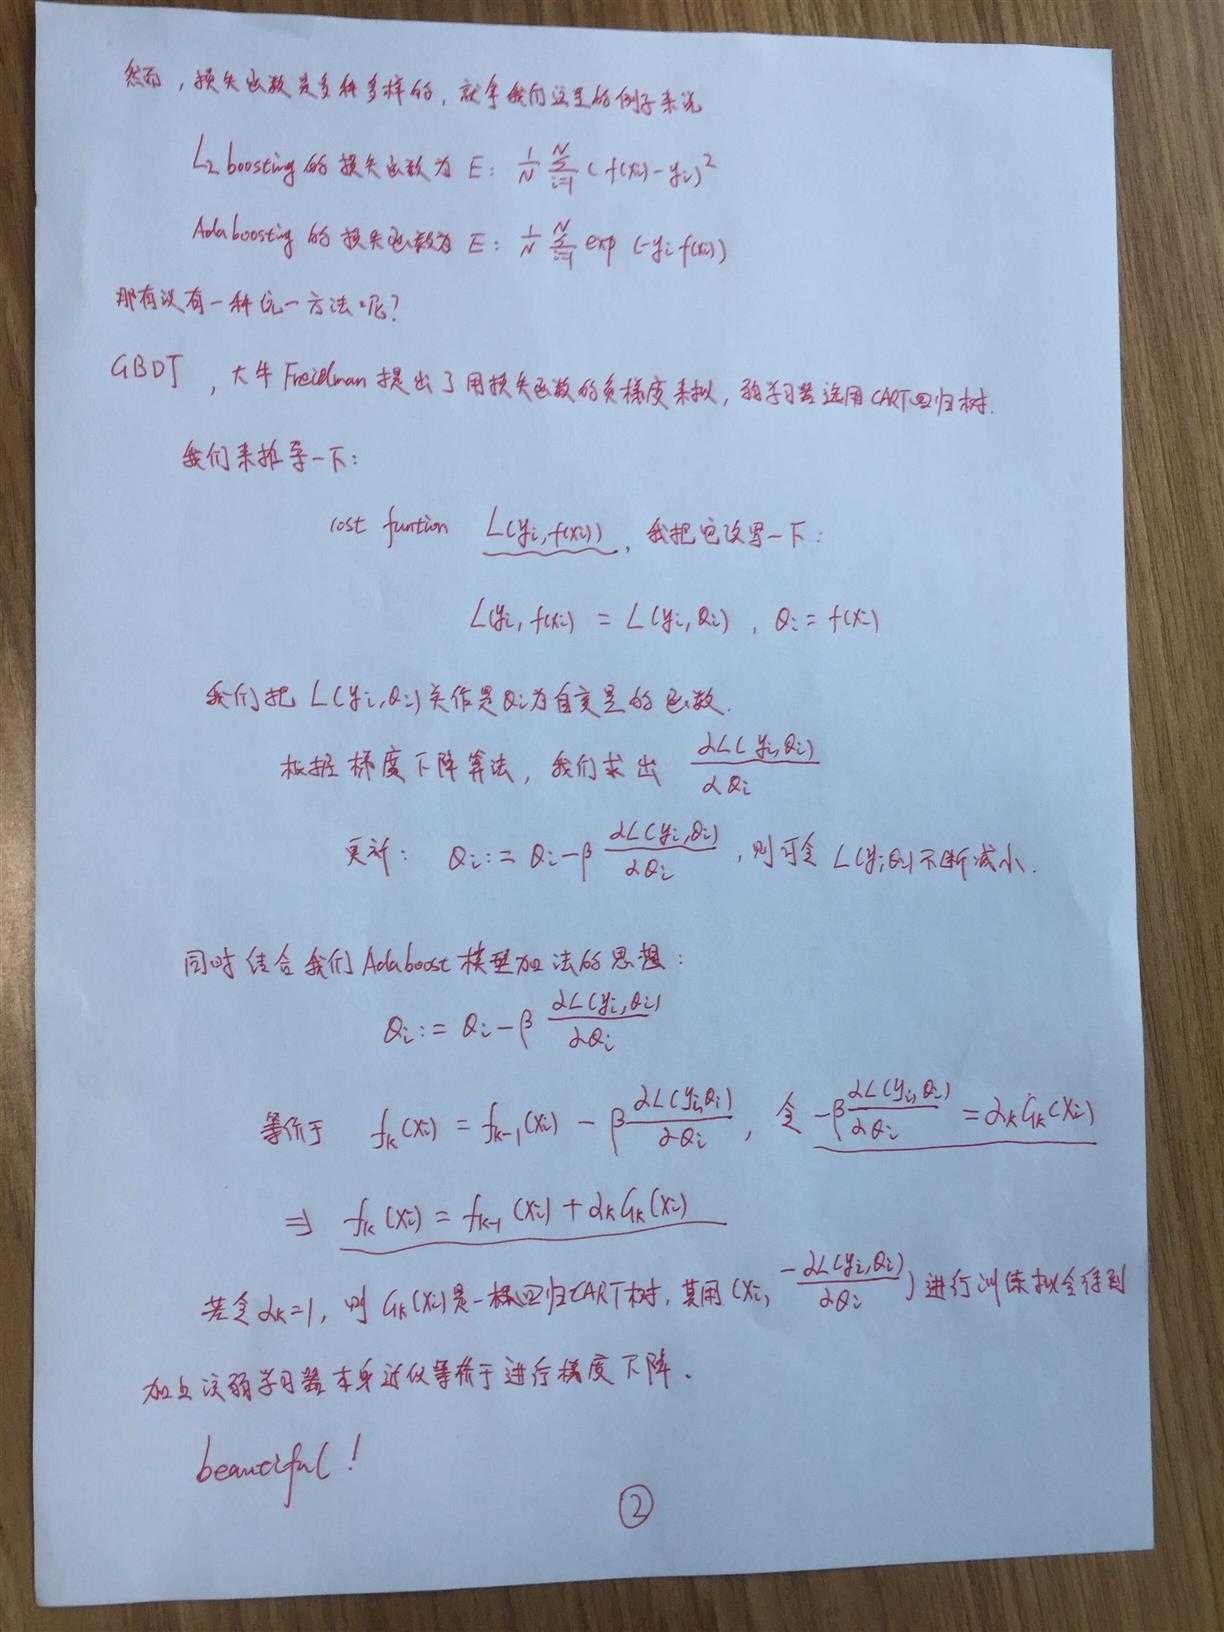 然而,损失函数是多种多样的,就拿我们这里的例子来说
L₂ boosting 的损失函数为 E: 1/N ∑_{i=1}^{N} (f(xi)-yi)²
Adaboosting 的损失函数为 E: 1/N ∑_{i=1}^{N} exp (-yi f(xi))
那有没有一种统一方法呢?
GBDT ,大牛 Freidman 提出了用损失函数的负梯度来拟,弱学习器选用 CART回归树.
我们来推导一下:
cost funtion L(yi,f(xi)),我把它改写一下:
L(yi, f(xi) = L(yi,θi) , θi = f(xi)
我们把 L(yi,θi)关作是θi为自变是的函数.
根据梯度下降算法,我们求出 ∂L(yi,θi)/∂θi
更新: θi := θi - β ∂L(yi,θi)/∂θi ,则可令 L(yi,θi)不断减小.
同时结合我们 Adaboost 模型加法的思想:
θi := θi - β ∂L(yi,θi)/∂θi
等价于 fk(xi) = fk-1(xi) - β ∂L(yi,θi)/∂θi , 令 -β ∂L(yi,θi)/∂θi = αk Gk(xi)
⇒ fk(xi) = fk-1(xi) + αk Gk(xi)
若令 αk=1, 则 Gk(xi)是一棵回归CART树,其用(xi, -∂L(yi,θi)/∂θi)进行训练拟合得到
加上该弱学习器本身近似等价于进行梯度下降.
beautiful!
②